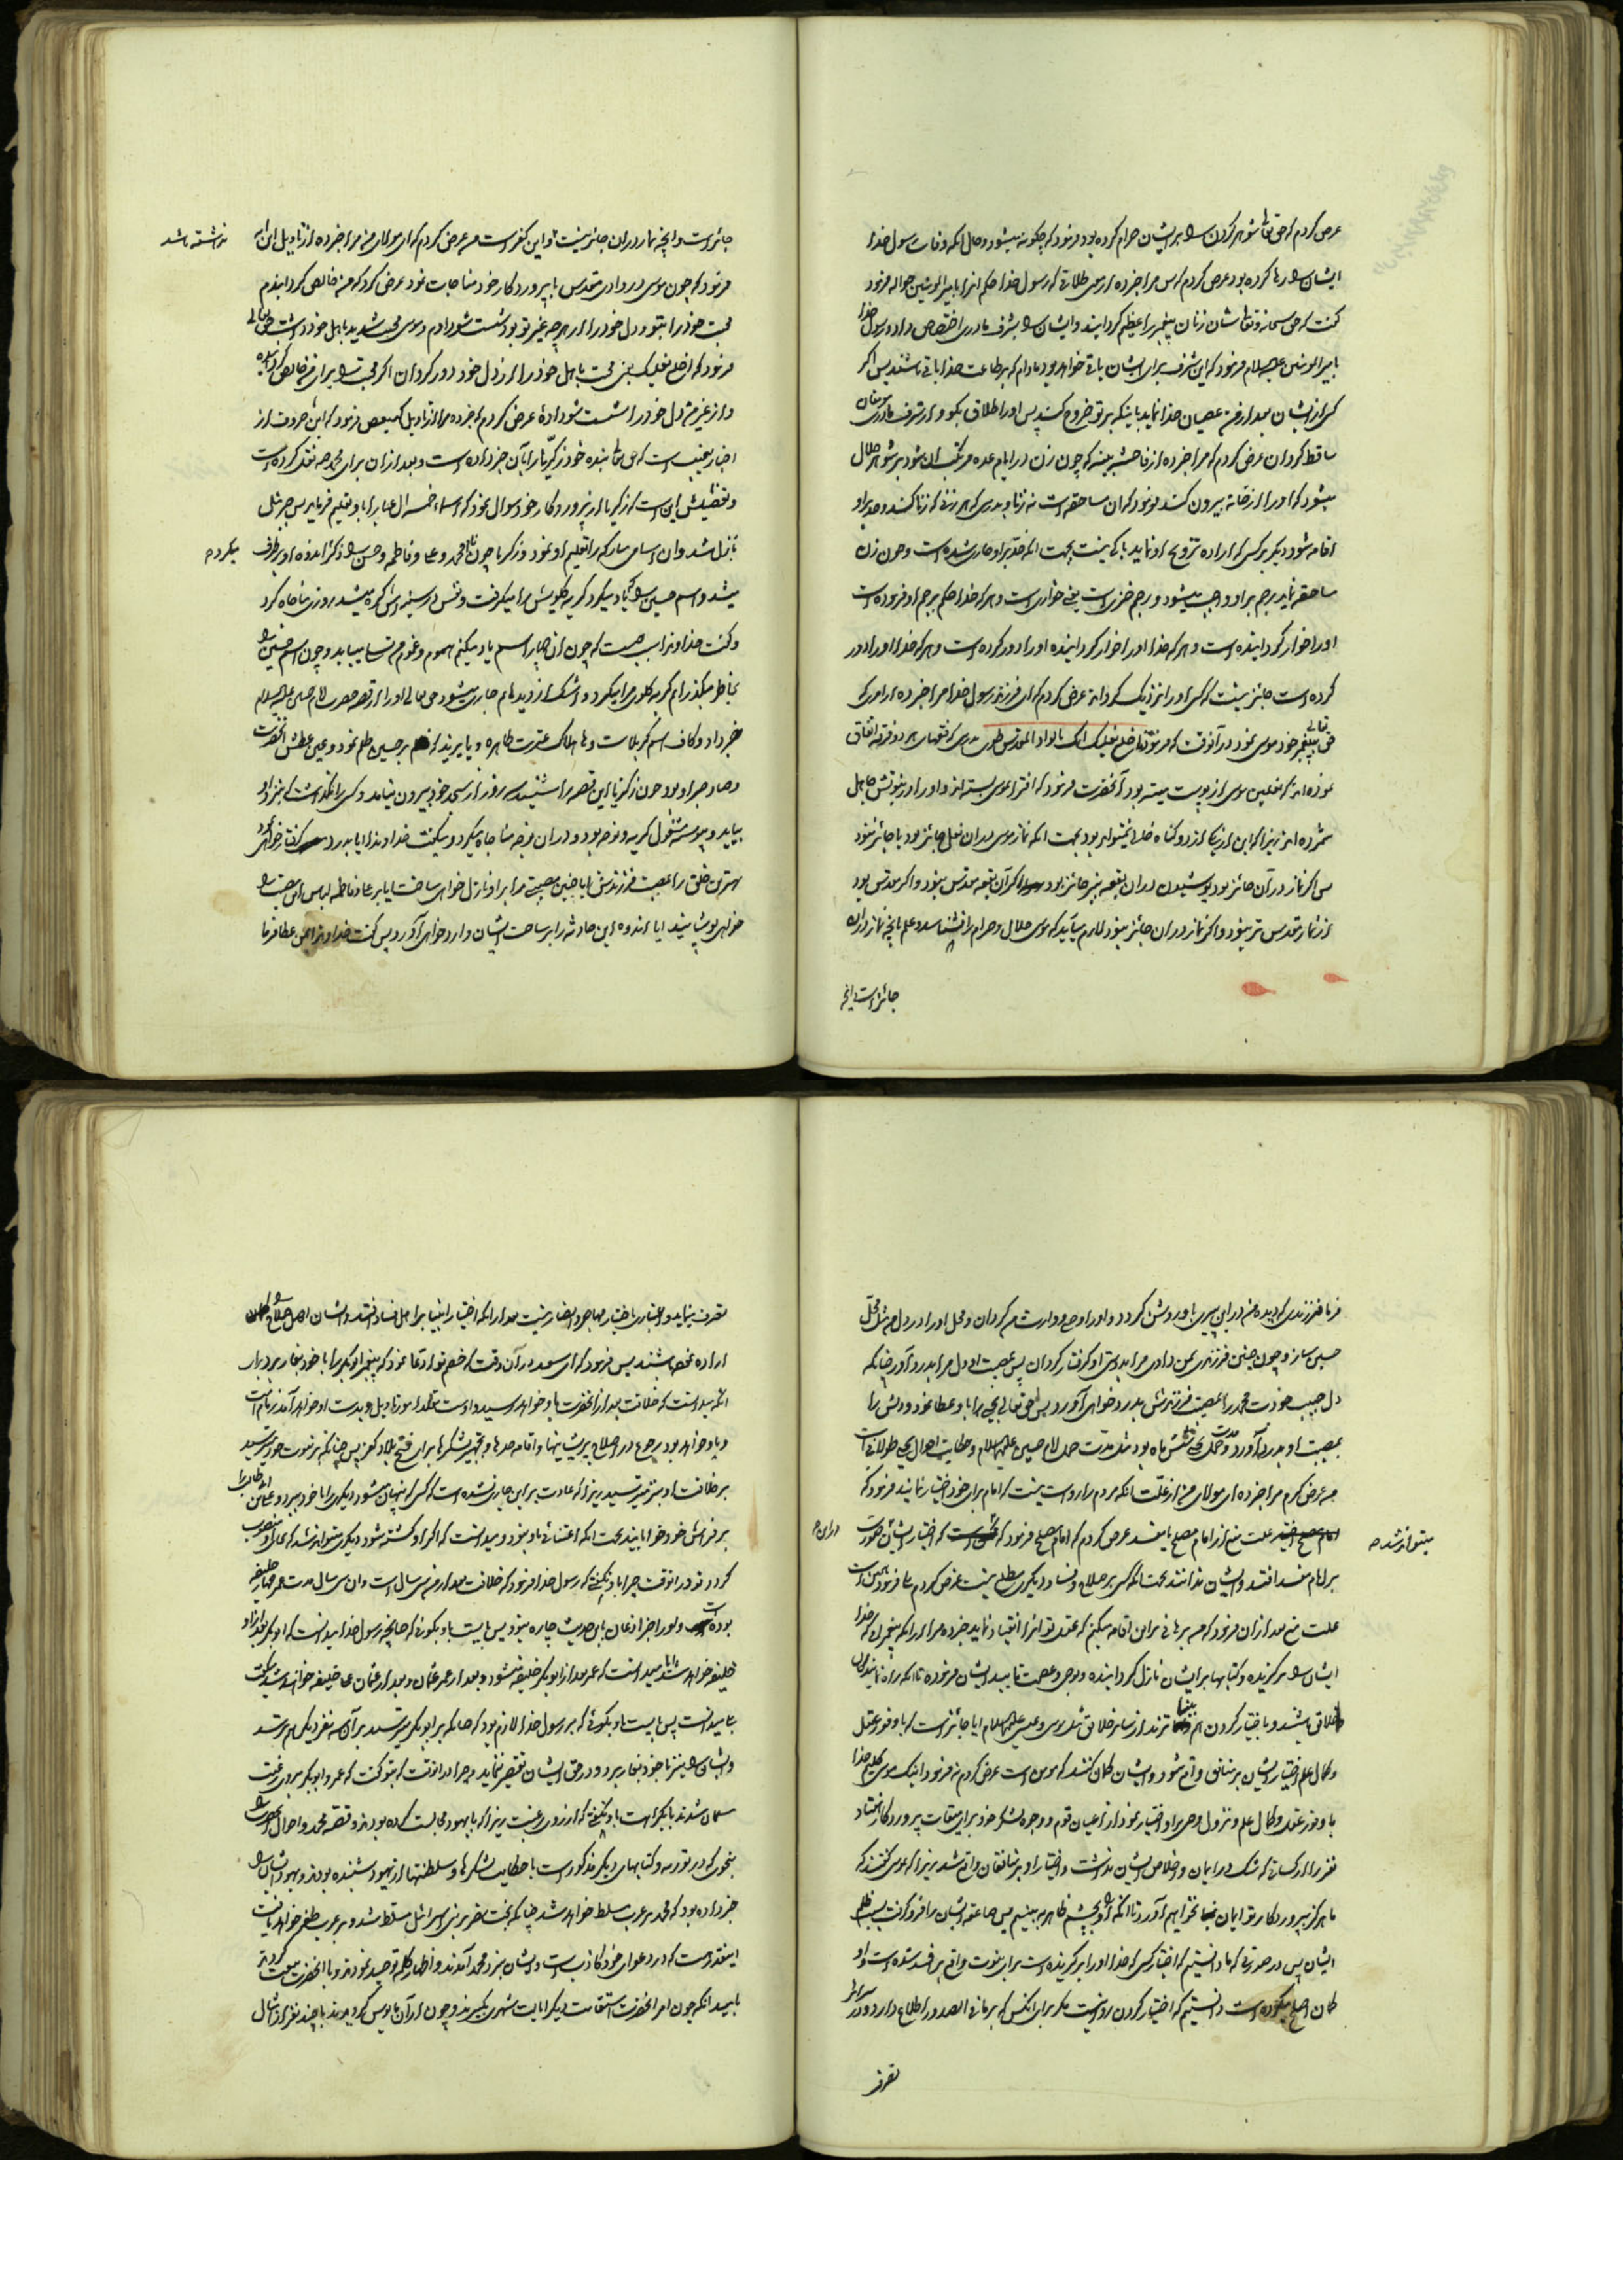 عرض کردم که حق تعالی شوهر کردن را بر ایشان حرام کرده بود فرمود که چگونه میشود و حال آنکه وفات رسول خدا
ایشان را رها کرده بود عرض کردم که پس مرا خبر ده از معنی طلاقی که رسول خدا حکم آنرا با امیر المؤمنین حواله فرمود
گفت که حق سبحانه و تعالی شان زنان پیغمبر را عظیم گردانید و ایشان را بشرف مادری اختصاص داد و رسول خدا
با امیر المومنین علیه السلام فرمود که این شرف برای ایشان باقی خواهد بود مادام که بر طاعت خدا باقی باشند پس اگر
کسی از ایشان بعد از من عصیان خدا نماید باینکه بر تو خروج کند پس او را طلاق بگو و از شرف مادری مومنان
ساقط گردان عرض کردم که مرا خبر ده از فاحشه مبینه که چون زن در ایام عده مرتکب آن شود بر شوهر حلال
میشود که او را از خانه بیرون کند فرمود که آن مساحقه است نه زنا و بدرستی که هر زنی که زنا کند و حد بر او
اقامه شود دیگر بر کسی که اراده تزویج او نماید باکی نیست بجهت آنکه حد بر او جاری شده است و چون زن
مساحقه نماید رجم بر او واجب میشود و رجم خزی است یعنی خواری است و هر که خدا حکم برجم او فرموده است
او را خوار گردانیده است و هر که خدا او را خوار گردانیده او را دور کرده است و هر که خدا او را دور
کرده است جائز نیست که کسی او را نزدیک گرداند عرض کردم که ای فرزند رسول خدا مرا خبر ده از امری که
حق تعالی پیغمبر خود موسی نمود در آنوقت که فرمود فاخلع نعلیک انک بالواد المقدس طوی بدرستی که فقهای هر دو فرقه اتفاق
نموده اند که نعلین موسی از پوست میته بود آنحضرت فرمود که افترا بموسی بسته اند و او را در نبوتش جاهل
شمرده اند زیرا که این از یکی از دو گناه خالی نمیتواند بود بجهت آنکه نماز موسی در آن نعل جائز بود یا جائز نبود
پس اگر نماز در آن جائز بود پوشیدن در آن بقعه نیز جائز بود اگر آن بقعه مقدس بود و اگر مقدس بود
از نماز مقدس تر نبود و اگر نماز در آن جائز نبود لازم میآید که موسی حلال و حرام را نشناسد و علم بآنچه نماز در آن
جائز است و آنچه
جائز است و آنچه نماز در آن جائز نیست و این کفر است من عرض کردم که ای مولای من مرا خبر ده از تاویل این آیه
نداشته باشد
فرمود که چون موسی در وادی مقدس با پروردگار خود مناجات نمود عرض کرد که من خالص گردانیدم
محبت خود را بتو و دل خود را از هر چه غیر تو بود شست و شو دادم و موسی محبت شدید باهل خود داشت حق تعالی
فرمود که فاخلع نعلیک یعنی محبت باهل خود را از دل خود دور گردان اگر محبت تو برای من خالص گردیده
و از غیر من دل خود را شست و شو داده عرض کردم که خبر ده مرا از تاویل کهیعص فرمود که این حروف از
اخبار بغیب است که حق تعالی بنده خود زکریا را بآن خبر داده است و بعد از آن برای محمد ص نقل کرده است
و تفصیلش این است که زکریا از پروردگار خود سوال نمود که اسماء خمسه آل عبا را باو تعلیم فرماید پس جبرئیل
نازل شد و آن اسامی مبارکه را تعلیم او نمود و زکریا چون نام محمد و علی و فاطمه و حسن را ذکر اندوه او برطرف
میکرد ص
میشد و اسم حسین را که یاد میکرد گریه گلویش را میگرفت و نفس در سینه اش گره میشد روزی مناجات کرد
و گفت خداوندا سبب چیست که چون آن چهار اسم را یاد میکنم هموم و غموم من تسلی مییابد و چون اسم حسین را
بخاطر میگذرانم گریه گلوی مرا میگیرد و اشک از دیدهای من جاری میشود حق تعالی او را از قصه حضرت امام حسین علیه السلام
خبر داد و کاف اسم کربلا است و ها هلاک عترت طاهره و یا یزید که بر حسین ظلم نمود و عین عطش آنحضرت
و صاد صبر او بود چون زکریا این قصه را شنید سه روز از مسجد خود بیرون نیامد و کسی را نگذاشت که بنزد او
بیاید و پیوسته مشغول گریه و نوحه بود و در آن نوحه مناجات میکرد و میگفت خداوندا آیا بدرد خواهی آورد
بهترین خلق را بمصیبت فرزندش آیا چنین مصیبتی را بر او نازل خواهی ساخت آیا بر علی و فاطمه لباس این مصیبت را
خواهی پوشانید آیا اندوه این حادثه را بر ساحت ایشان وارد خواهی آورد پس گفت خداوندا بمن عطا فرما
فرما فرزندی که دیده من در این پیری باو روشن گردد و او را وصی و وارث من گردان و محل او را در دل من مثل محل
حسین ساز و چون چنین فرزندی بمن دادی مرا بدوستی او گرفتار گردان پس بمصیبت او دل مرا بدرد آور چنانکه
دل حبیب خودت محمد را بمصیبت فرزندش بدرد خواهی آورد پس حق تعالی یحیی را باو عطا نمود و دلش را
بمصیبت او بدرد آورد و مدت حمل یحیی شش ماه بود مثل مدت حمل امام حسین علیهما السلام و حکایت احوال یحیی طولانی است
من عرض کردم مرا خبر ده ای مولای من از علت آنکه مردم را روا نیست که امام برای خود اختیار نمایند فرمود که
علت منع از امام مصلح یا مفسد عرض کردم که امام مصلح فرمود که که اختیار ایشان در این صورت
میتواند شد ص
در این ص
بر امام مفسد افتد و ایشان ندانند بجهت آنکه کسی بر صلاح و فساد دیگری مطلع نیست عرض کردم بلی فرمود همین است
علت منع بعد از آن فرمود که من برهانی بر این اقامه میکنم که عقل تو آنرا انقیاد نماید خبر ده مرا از آنکه پیغمبرانی که خدا
ایشان را برگزیده و کتابها بر ایشان نازل گردانیده و بوحی و عصمت تایید ایشان فرموده تا آنکه راه نمایندگان
خلائق باشند و باختیار کردن هم بیناترند از سایر خلائق مثل موسی و عیسی علیهما السلام آیا جائز است که با وفور عقل
و کمال علم اختیار ایشان بر منافق واقع شود و ایشان گمان کنند که مومن است عرض کردم نه فرمود اینک موسی کلیم خدا
با وفور عقل و کمال علم و نزول وحی بر او اختیار نمود از اعیان قوم و وجوه لشکر خود برای میقات پروردگار هفتاد
نفر را از کسانی که شک در ایمان و اخلاص ایشان نداشت و اختیار او بر منافقان واقع شد زیرا که بموسی گفتند که
ما هرگز بپروردگار تو ایمان نخواهیم آورد تا آنکه او را بچشم ظاهر به بینیم پس صاعقه ایشان را فرو گرفت بسبب ظلم
ایشان پس در صورتی که ما دانستیم که اختیار کسی که خدا او را برگزیده است برای نبوت واقع بر افسد شده است و او
گمان اصلح میکرده است دانستیم که اختیار کردن روا نیست مگر برای آنکس که بر ما فی الصدور اطلاع دارد و در سرائر
تصرف
تصرف مینماید و اعتباری باختیار مهاجر و انصار نیست بعد از آنکه اختیار انبیا بر اهل فساد افتد و ایشان اهل صلاح را
اراده نموده باشند پس فرمود که ای سعد در آن وقت که خصم تو ادعا نمود که پیغمبر ابو بکر را با خود بغار برد برای
آنکه میدانست که خلافت بعد از آنحضرت باو خواهد رسید و اوست مقلد امور تاویل و بدست او خواهد آمد زمام امت
و باو خواهد بود رجوع در اصلاح پریشانیها و اقامه حدها و تجهیز لشکرها برای فتح بلاد کفر پس چنانکه بر نبوت خود میترسید
بر خلافت او نیز میترسید زیرا که عادت بر این جاری نشده است که کسی که پنهان میشود دیگری را با خود ببرد و علی بن ابی طالب را
بر فراش خود خوابانید بجهت آنکه اعتنائی باو نبود و میدانست که اگر او کشته شود دیگری میتواند شد که بجای او منصوب
گردد تو در آنوقت چرا باو نگفتی که رسول خدا فرمود که خلافت بعد از من سی سال است و آن سی سال مدت عمر چهار خلیفه
بوده است و او را جز اذعان باین حدیث چاره نبود پس بایست باو بگوئی که چنانچه رسول خدا میدانست که ابو بکر بعد از او
خلیفه خواهد شد آیا میدانست که عمر بعد از ابو بکر خلیفه میشود و بعد از عمر عثمان و بعد از عثمان علی خلیفه خواهند شد میگفت
بلی میدانست پس بایست باو بگوئی که بر رسول خدا لازم بود که چنانکه بر ابو بکر میترسید بر آن سه نفر دیگر هم بترسد
و ایشان را نیز با خود بغار ببرد و در حق ایشان تقصیر ننماید و چرا در آنوقت که بتو گفت که عمر و ابو بکر بروی رغبت
مسلمان شدند یا بکراهت باو نگفتی که از روی رغبت زیرا که با یهود مجالست کرده بودند و قصه محمد و احوال آنحضرت را
بنحوی که در توریه و کتابهای دیگر مذکور است با حکایت لشکرها و سلطنتها از یهود شنیده بودند و یهود ایشان را
خبر داده بود که محمد بر عرب مسلط خواهد شد چنانکه بخت نصر بر بنی اسرائیل مسلط شد و بر عرب ظفر خواهد یافت
اینقدر هست که در دعوای خود کاذب است و ایشان بنزد محمد آمدند و اظهار کلمه توحید نمودند و با آنحضرت بیعت کردند
بامید آنکه چون امر آنحضرت استقامت دیگر ایالت شهری بگیرند و چون از آن مایوس گردیدند با چند نفر از امثال